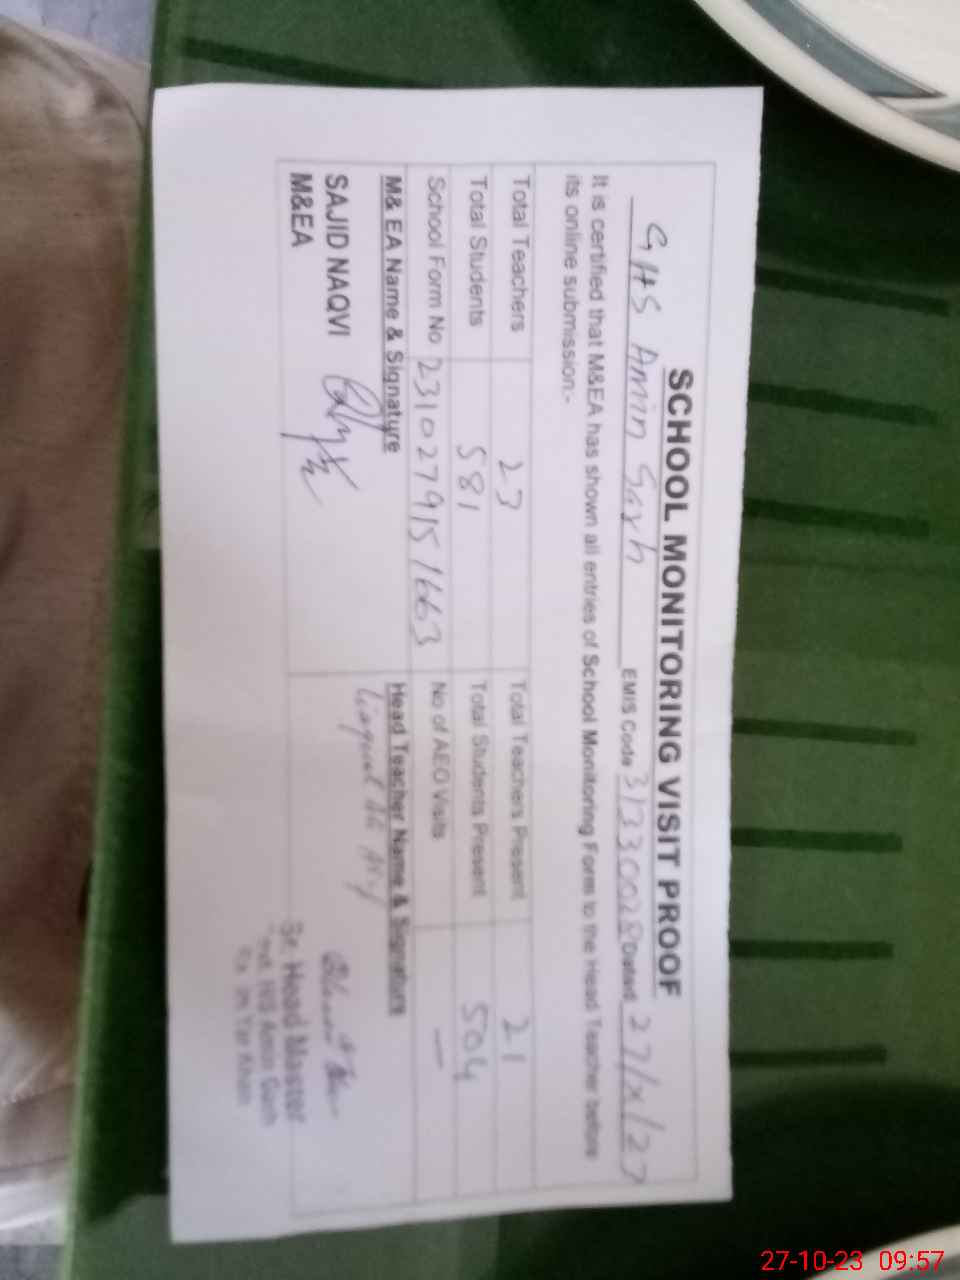 SCHOOL MONITORING VISIT PROOF
GHS Amin Garh EMIS Code 31330028 Dated 27/x/23
It is certified that M&EA has shown all entries of School Monitoring Form to the Head Teacher before
its online submission.-
Total Teachers 23 Total Teachers Present 21
Total Students 581 Total Students Present 504
School Form No 2310279151663 No of AEO Visits —
M& EA Name & Signature Head Teacher Name & Signature
SAJID NAQVI
M&EA
Sr. Head Master
Amin Garh
27-10-23 09:57